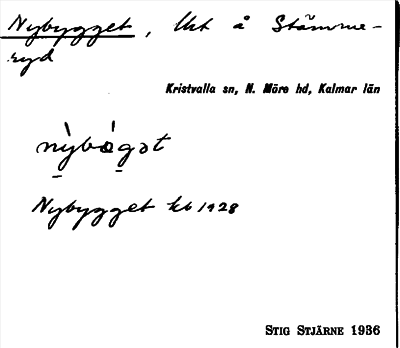 Nybygget, Uts å Stämme-
ryd
Kristvalla sn, N. Möre hd, Kalmar län
nỳbógət
Nybygget kb 1928
STIG STJÄRNE 1936